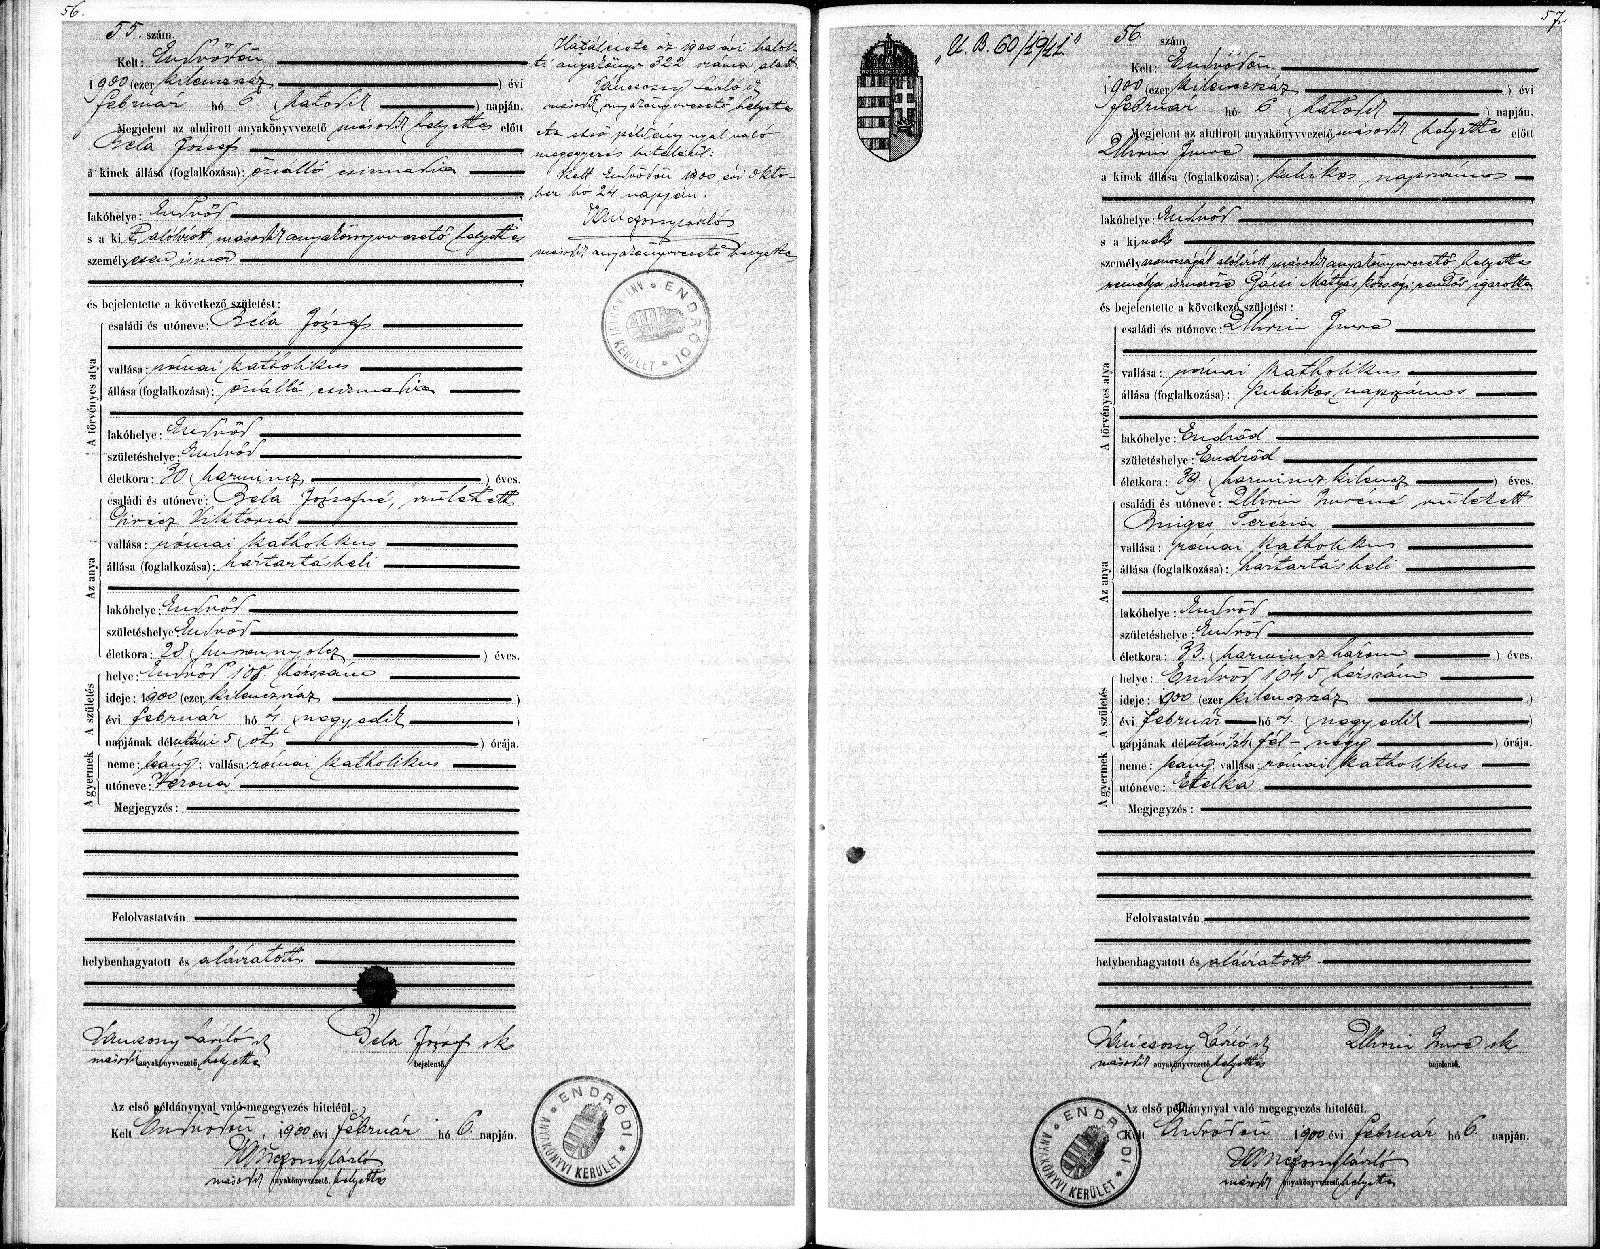 56.
55. szám.
Kelt: Endrődön
1900 (ezer kilenczszáz ) évi
február hó 6 (hatodik ) napján.
Megjelent az alulirott anyakönyvvezető második helyettes előtt
Bela József
a kinek állása (foglalkozása): önálló csizmadia
lakóhelye: Endrőd
s a kit alólírott második anyakönyvvezető helyettes
személyesen ismer
és bejelentette a következő születést:
A törvényes atya
családi és utóneve: Bela József
vallása: római katholikus
állása (foglalkozása): önálló csizmadia
lakóhelye: Endrőd
születéshelye: Endrőd
életkora: 30 (harmincz ) éves.
Az anya
családi és utóneve: Bela Józsefné, született
Viktoria
vallása: római katholikus
állása (foglalkozása): háztartásbeli
lakóhelye: Endrőd
születéshelye: Endrőd
életkora: 28 (huszonnyolcz ) éves.
A születés
helye: Endrőd 108 házszám
ideje: 1900 (ezer kilenczszáz )
évi február hó 4 (negyedik )
napjának délutáni 5 (öt ) órája.
A gyermek
neme: leány; vallása: római katholikus
utóneve: Verona
Megjegyzés:
Felolvastatván
helybenhagyatott és aláiratott
László sk
második anyakönyvvezető helyettes
Bela József sk
bejelentő.
Az első példánynyal való megegyezés hiteléül.
Kelt Endrődön, 1900 évi február hó 6. napján.
második anyakönyvvezető helyettes
Halálesete az 1900 évi halot-
ti anyakönyv 322 száma alatt
László sk
második anyakönyvvezető helyettes
Az első példánynyal való
megegyezés hiteléül.
Kelt Endrődön 1900 évi Októ-
ber hó 24 napján.
második anyakönyvvezető helyettes
ENDRŐDI ANYAKÖNYVI KERÜLET
ENDRŐDI ANYAKÖNYVI KERÜLET
57.
"U. B. 60/1941"
56. szám
Kelt: Endrődön
1900 (ezer kilenczszáz ) évi
február hó 6 (hatodik ) napján.
Megjelent az alulirott anyakönyvvezető második helyettes előtt
Imre
a kinek állása (foglalkozása): kubikos napszámos
lakóhelye: Endrőd
s a kinek
személyazonosságát alólírott második anyakönyvvezető helyettes
személyes ismerőse Mátyás községi rendőr igazolta
és bejelentette a következő születést:
A törvényes atya
családi és utóneve: Imre
vallása: római katholikus
állása (foglalkozása): kubikos napszámos
lakóhelye: Endrőd
születéshelye: Endrőd
életkora: 39 (harminczkilencz ) éves.
Az anya
családi és utóneve: Imréné született
Terézia
vallása: római katholikus
állása (foglalkozása): háztartásbeli
lakóhelye: Endrőd
születéshelye: Endrőd
életkora: 33. (harminczhárom ) éves.
A születés
helye: Endrőd 1045 házszám
ideje: 1900 (ezer kilenczszáz )
évi február hó 4 (negyedik )
napjának délutáni 1/24 (fél-négy ) órája.
A gyermek
neme: leány; vallása: római katholikus
utóneve: Etelka
Megjegyzés:
Felolvastatván
helybenhagyatott és aláiratott
László sk
második anyakönyvvezető helyettes
Imre sk
bejelentő.
Az első példánynyal való megegyezés hiteléül.
Kelt Endrődön 1900 évi február hó 6. napján.
második anyakönyvvezető helyettes
ENDRŐDI ANYAKÖNYVI KERÜLET